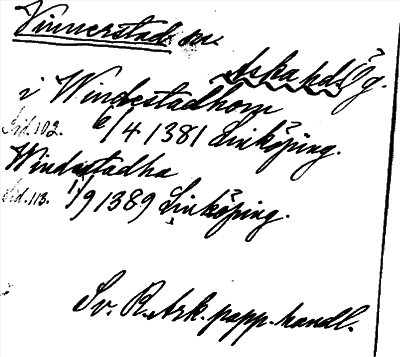 Vinnerstad sn.
Aska hd. Ög.
i Windestadhom
Sd. 102. 6/4 1381 Linköping.
Windestadha
Sd. 113. 1/9 1389 Linköping.
Sv. R. Ark. papp. handl.